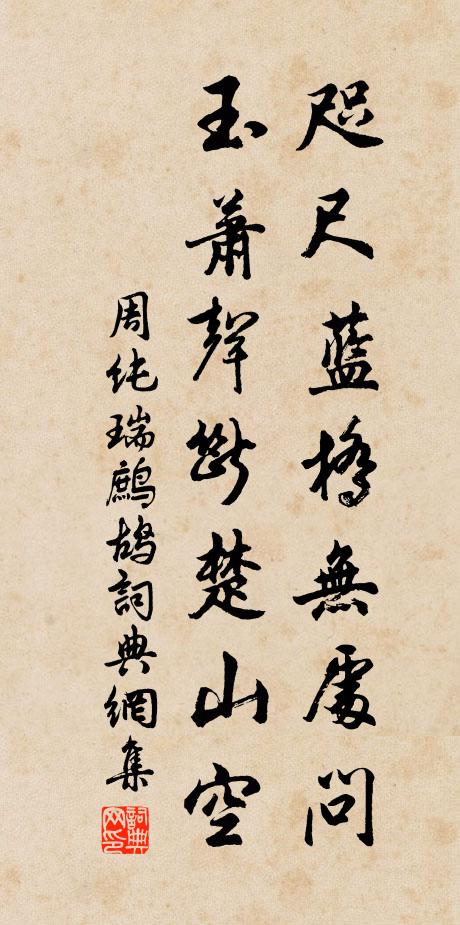 咫尺藍橋無處問
玉蕭聲斷楚山空
周純瑞鷓鴣詞典網集
詞典
网印